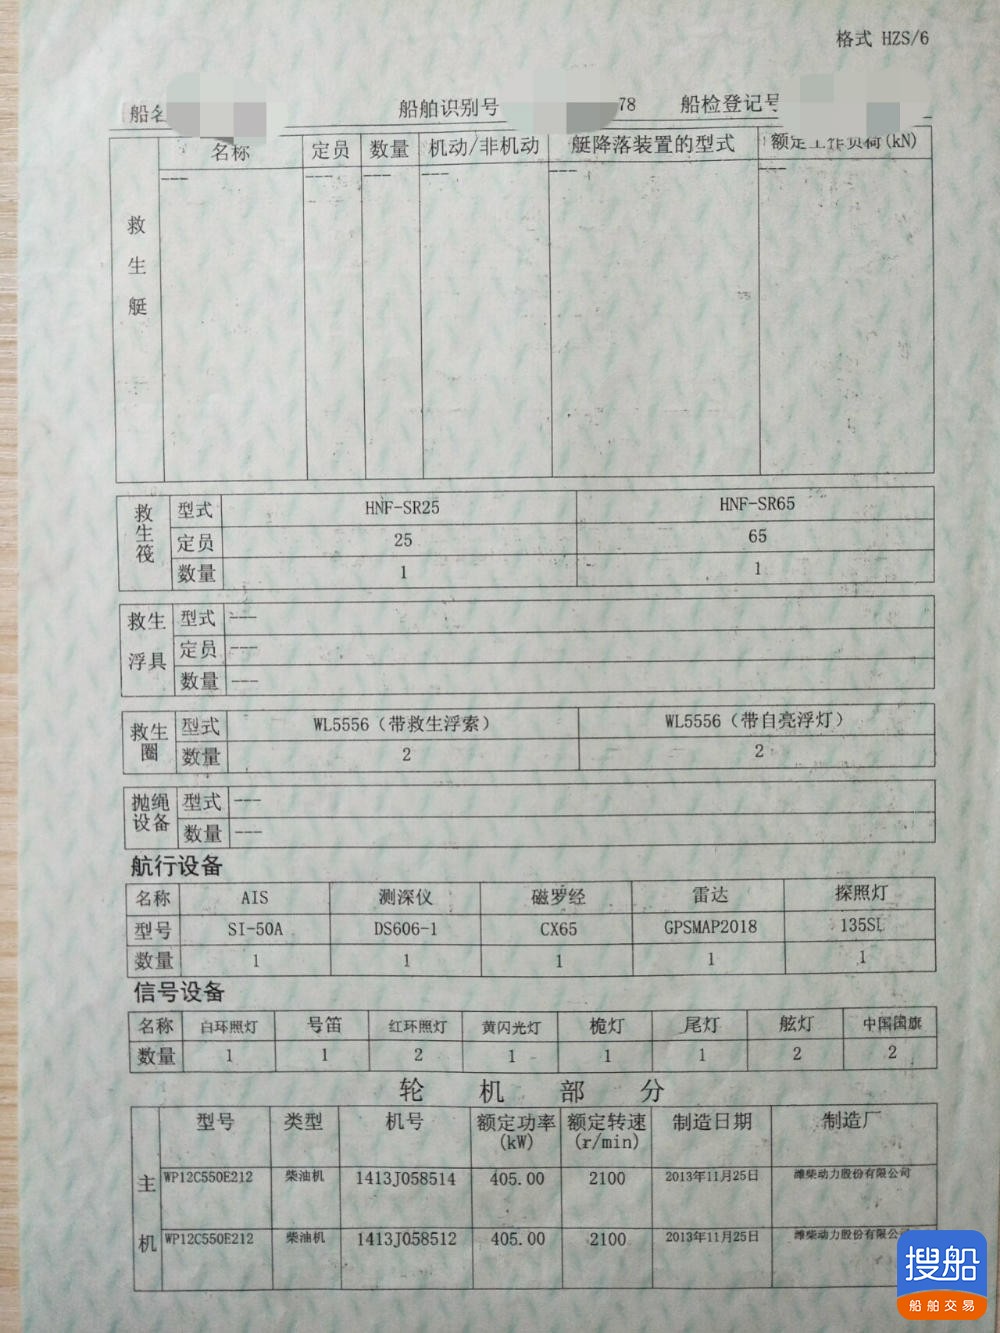 格式 HZS/6
船名 船舶识别号 78 船检登记号
名称 定员 数量 机动/非机动 艇降落装置的型式 额定工作负荷(kN)
--- --- --- --- --- ---
救生艇
救生筏 型式 HNF-SR25 HNF-SR65
定员 25 65
数量 1 1
救生浮具 型式 ---
定员 ---
数量 ---
救生圈 型式 WL5556（带救生浮索） WL5556（带自亮浮灯）
数量 2 2
抛绳设备 型式 ---
数量 ---
航行设备
名称 AIS 测深仪 磁罗经 雷达 探照灯
型号 SI-50A DS606-1 CX65 GPSMAP2018 135SL
数量 1 1 1 1 1
信号设备
名称 白环照灯 号笛 红环照灯 黄闪光灯 桅灯 尾灯 舷灯 中国国旗
数量 1 1 2 1 1 1 2 2
轮机部分
型号 类型 机号 额定功率(kW) 额定转速(r/min) 制造日期 制造厂
主机 WP12C550E212 柴油机 1413J058514 405.00 2100 2013年11月25日 潍柴动力股份有限公司
WP12C550E212 柴油机 1413J058512 405.00 2100 2013年11月25日 潍柴动力股份有限公
搜船
船舶交易